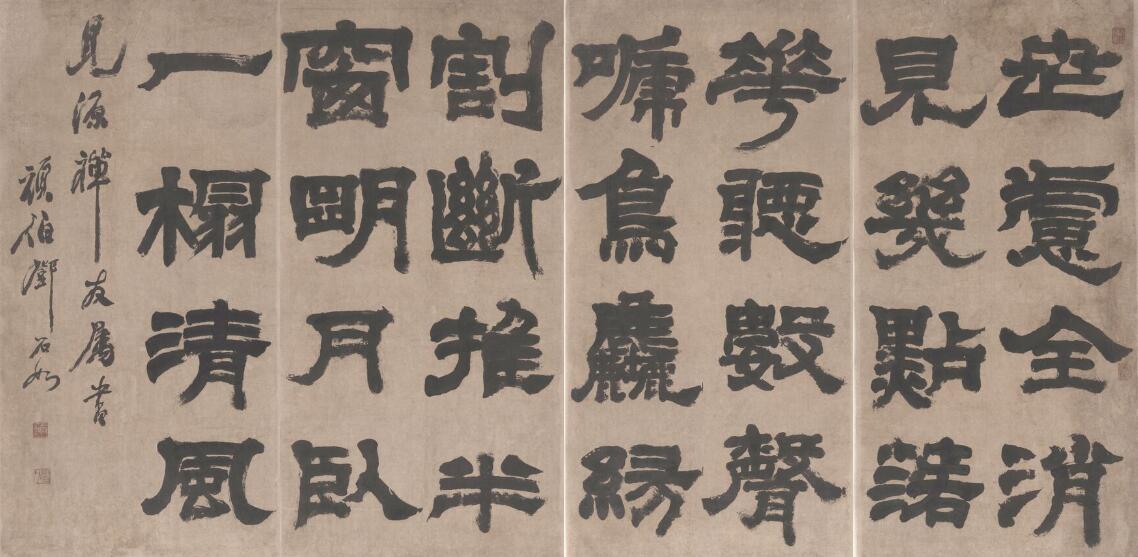 世慮全消
見幾點落
華聽數聲
嗁鳥麤緣
割斷推半
窗明月臥
一榻清風
見源禪友屬書
頑伯鄧石如